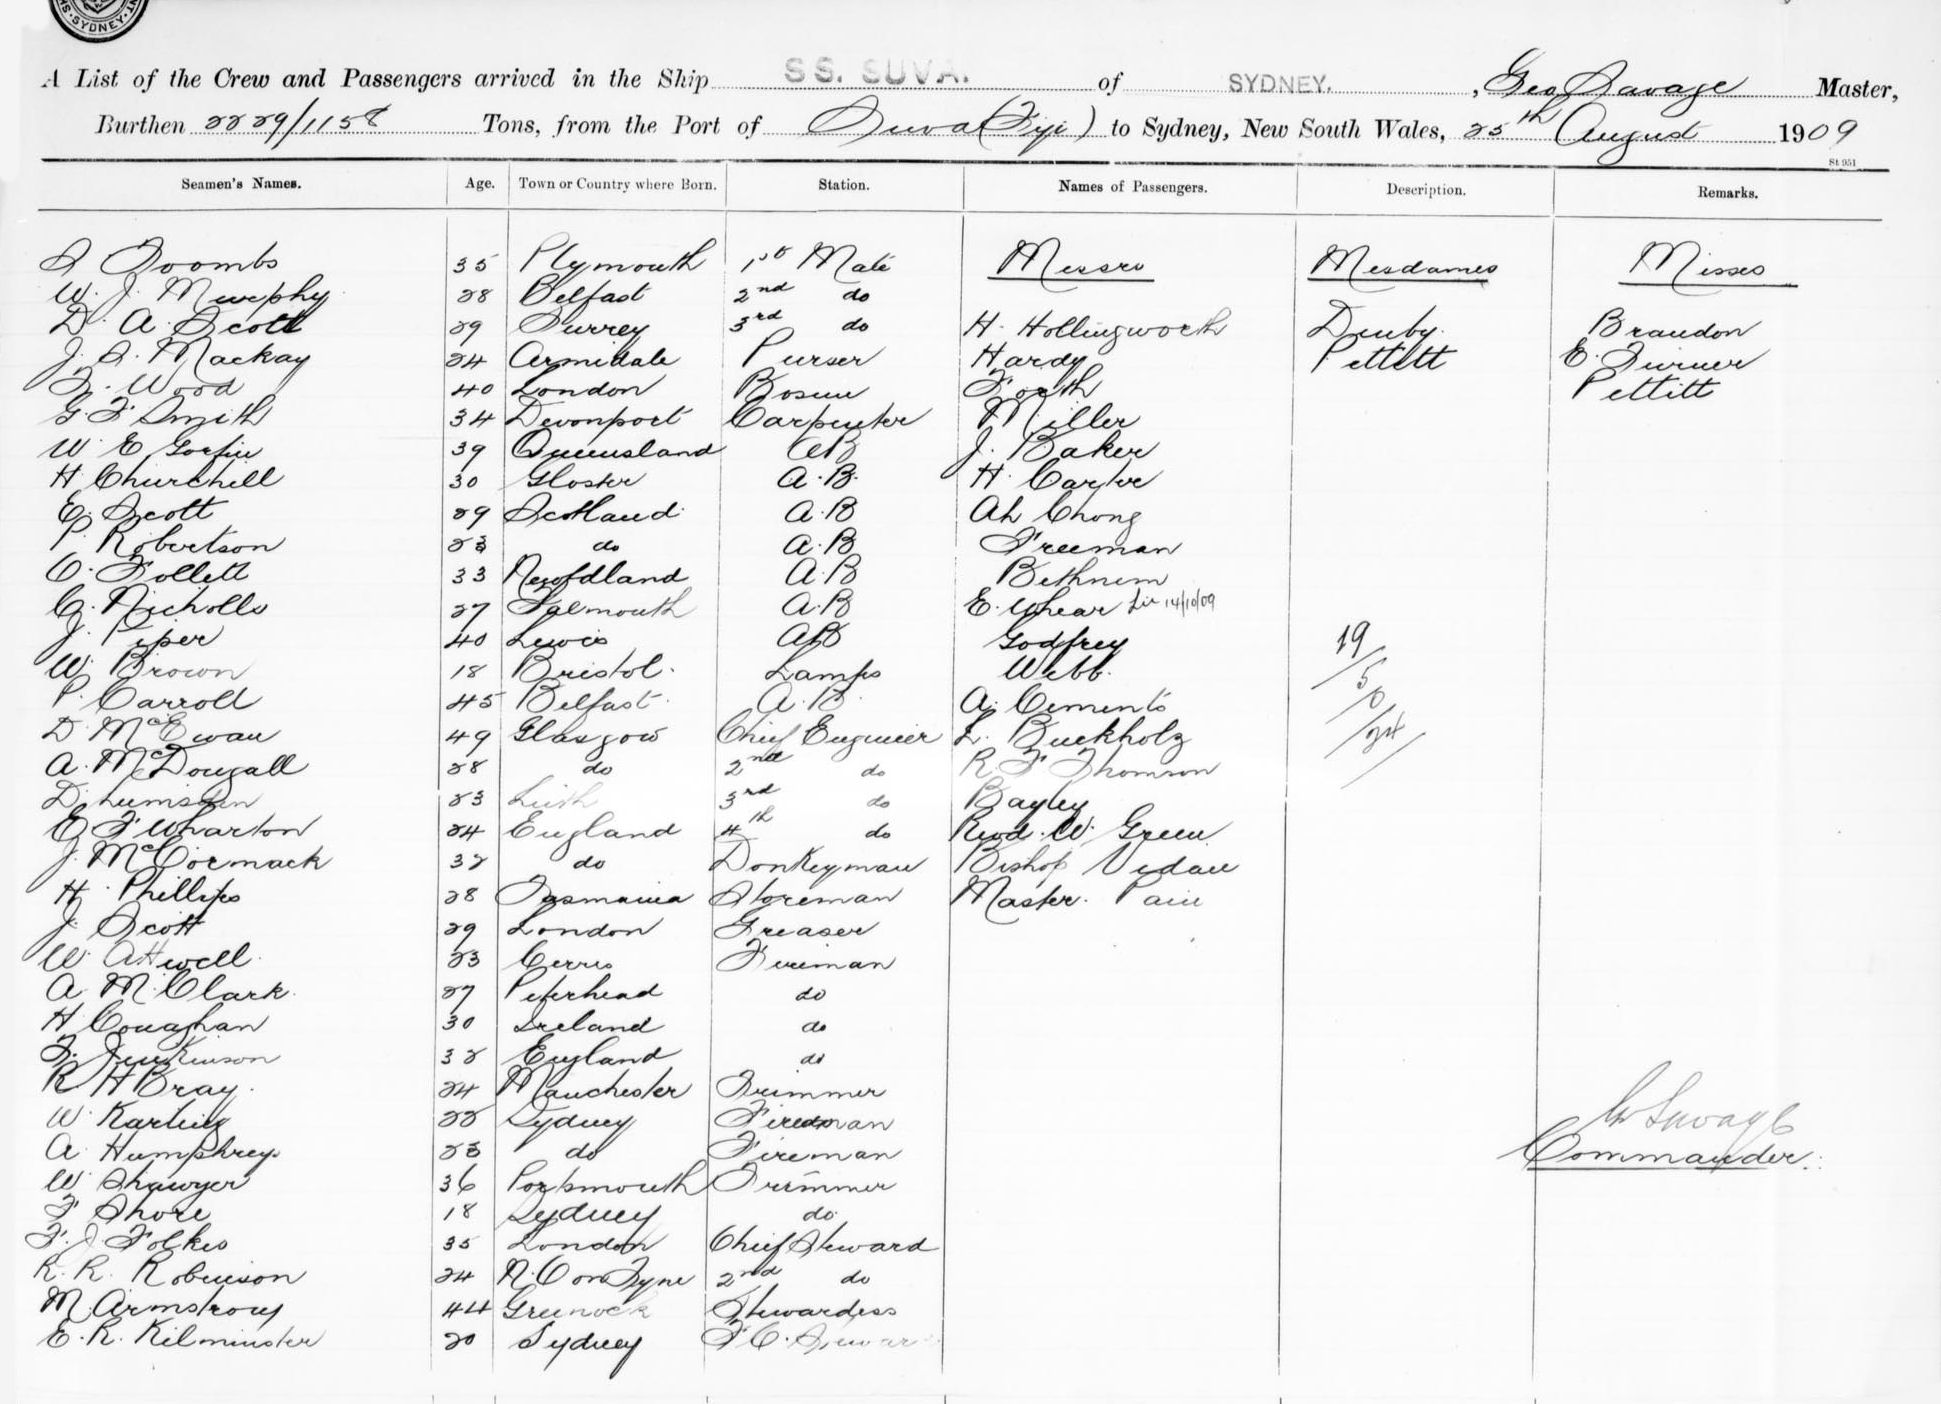 SYDNEY
A List of the Crew and Passengers arrived in the Ship SS. SUVA. of SYDNEY. , Geo Savage Master,
Burthen 2229/1158 Tons, from the Port of Suva (Fiji) to Sydney, New South Wales, 25th August 1909
St 951
Seamen's Names. Age. Town or Country where Born. Station. Names of Passengers. Description. Remarks.
S Toombs 35 Plymouth 1st Mate Messrs Mesdames Misses
W. J. Murphy 28 Belfast 2nd do
D. A. Scott 29 Surrey 3rd do H. Hollingworth Denby Brandon
J. S. Mackay 24 Armidale Purser Hardy Pettitt E. Turner
F. Wood 40 London Bosun Forth Pettitt
G. F Smith 34 Devonport Carpenter Miller
W. E 39 Queensland AB J. Baker
H Churchill 30 Gloster A.B. H. Carter
E. Scott 29 Scotland A.B Ah Chong
P. Robertson 23 do A.B Freeman
O. Follett 33 Newfdland A.B
C. Nicholls 27 Falmouth A.B E. Whear 14/10/09
J. Piper 40 Lewis AB Godfrey 19
W. Brown 18 Bristol. Lamps Webb. 5
P. Carroll 45 Belfast. A.B. A. Cements 0
D. McEwan 49 Glasgow Chief Engineer L. Buckholz 24
A. McDougall 28 do 2nd do R F Thomson
D. Lumsden 23 Leith 3rd do Bayley
E F Wharton 24 England 4th do Revd. W. Green
J. McCormack 32 do Donkeyman Bishop Vidau
H. Phillips 28 Tasmania Storeman Master. Pain
J. Scott 29 London Greaser
W. Attwell 23 Fireman
A M. Clark. 27 Peterhead do
H Conaghan 30 Ireland do
F. Jenkinson 32 England do
R H Bray. 24 Manchester Trimmer
W. Karling 22 Sydney Fireman G Savage
A. Humphreys 23 do Fireman Commander.
W Shawyer 36 Portsmouth Trimmer
F Shore 18 Sydney do.
F. J. Folkes 35 London Chief Steward
R. R. Robinson 24 N. C on Tyne 2nd do
M Armstrong 44 Greenock Stewardess
E. R. Kilminster 20 Sydney F C. Stewar